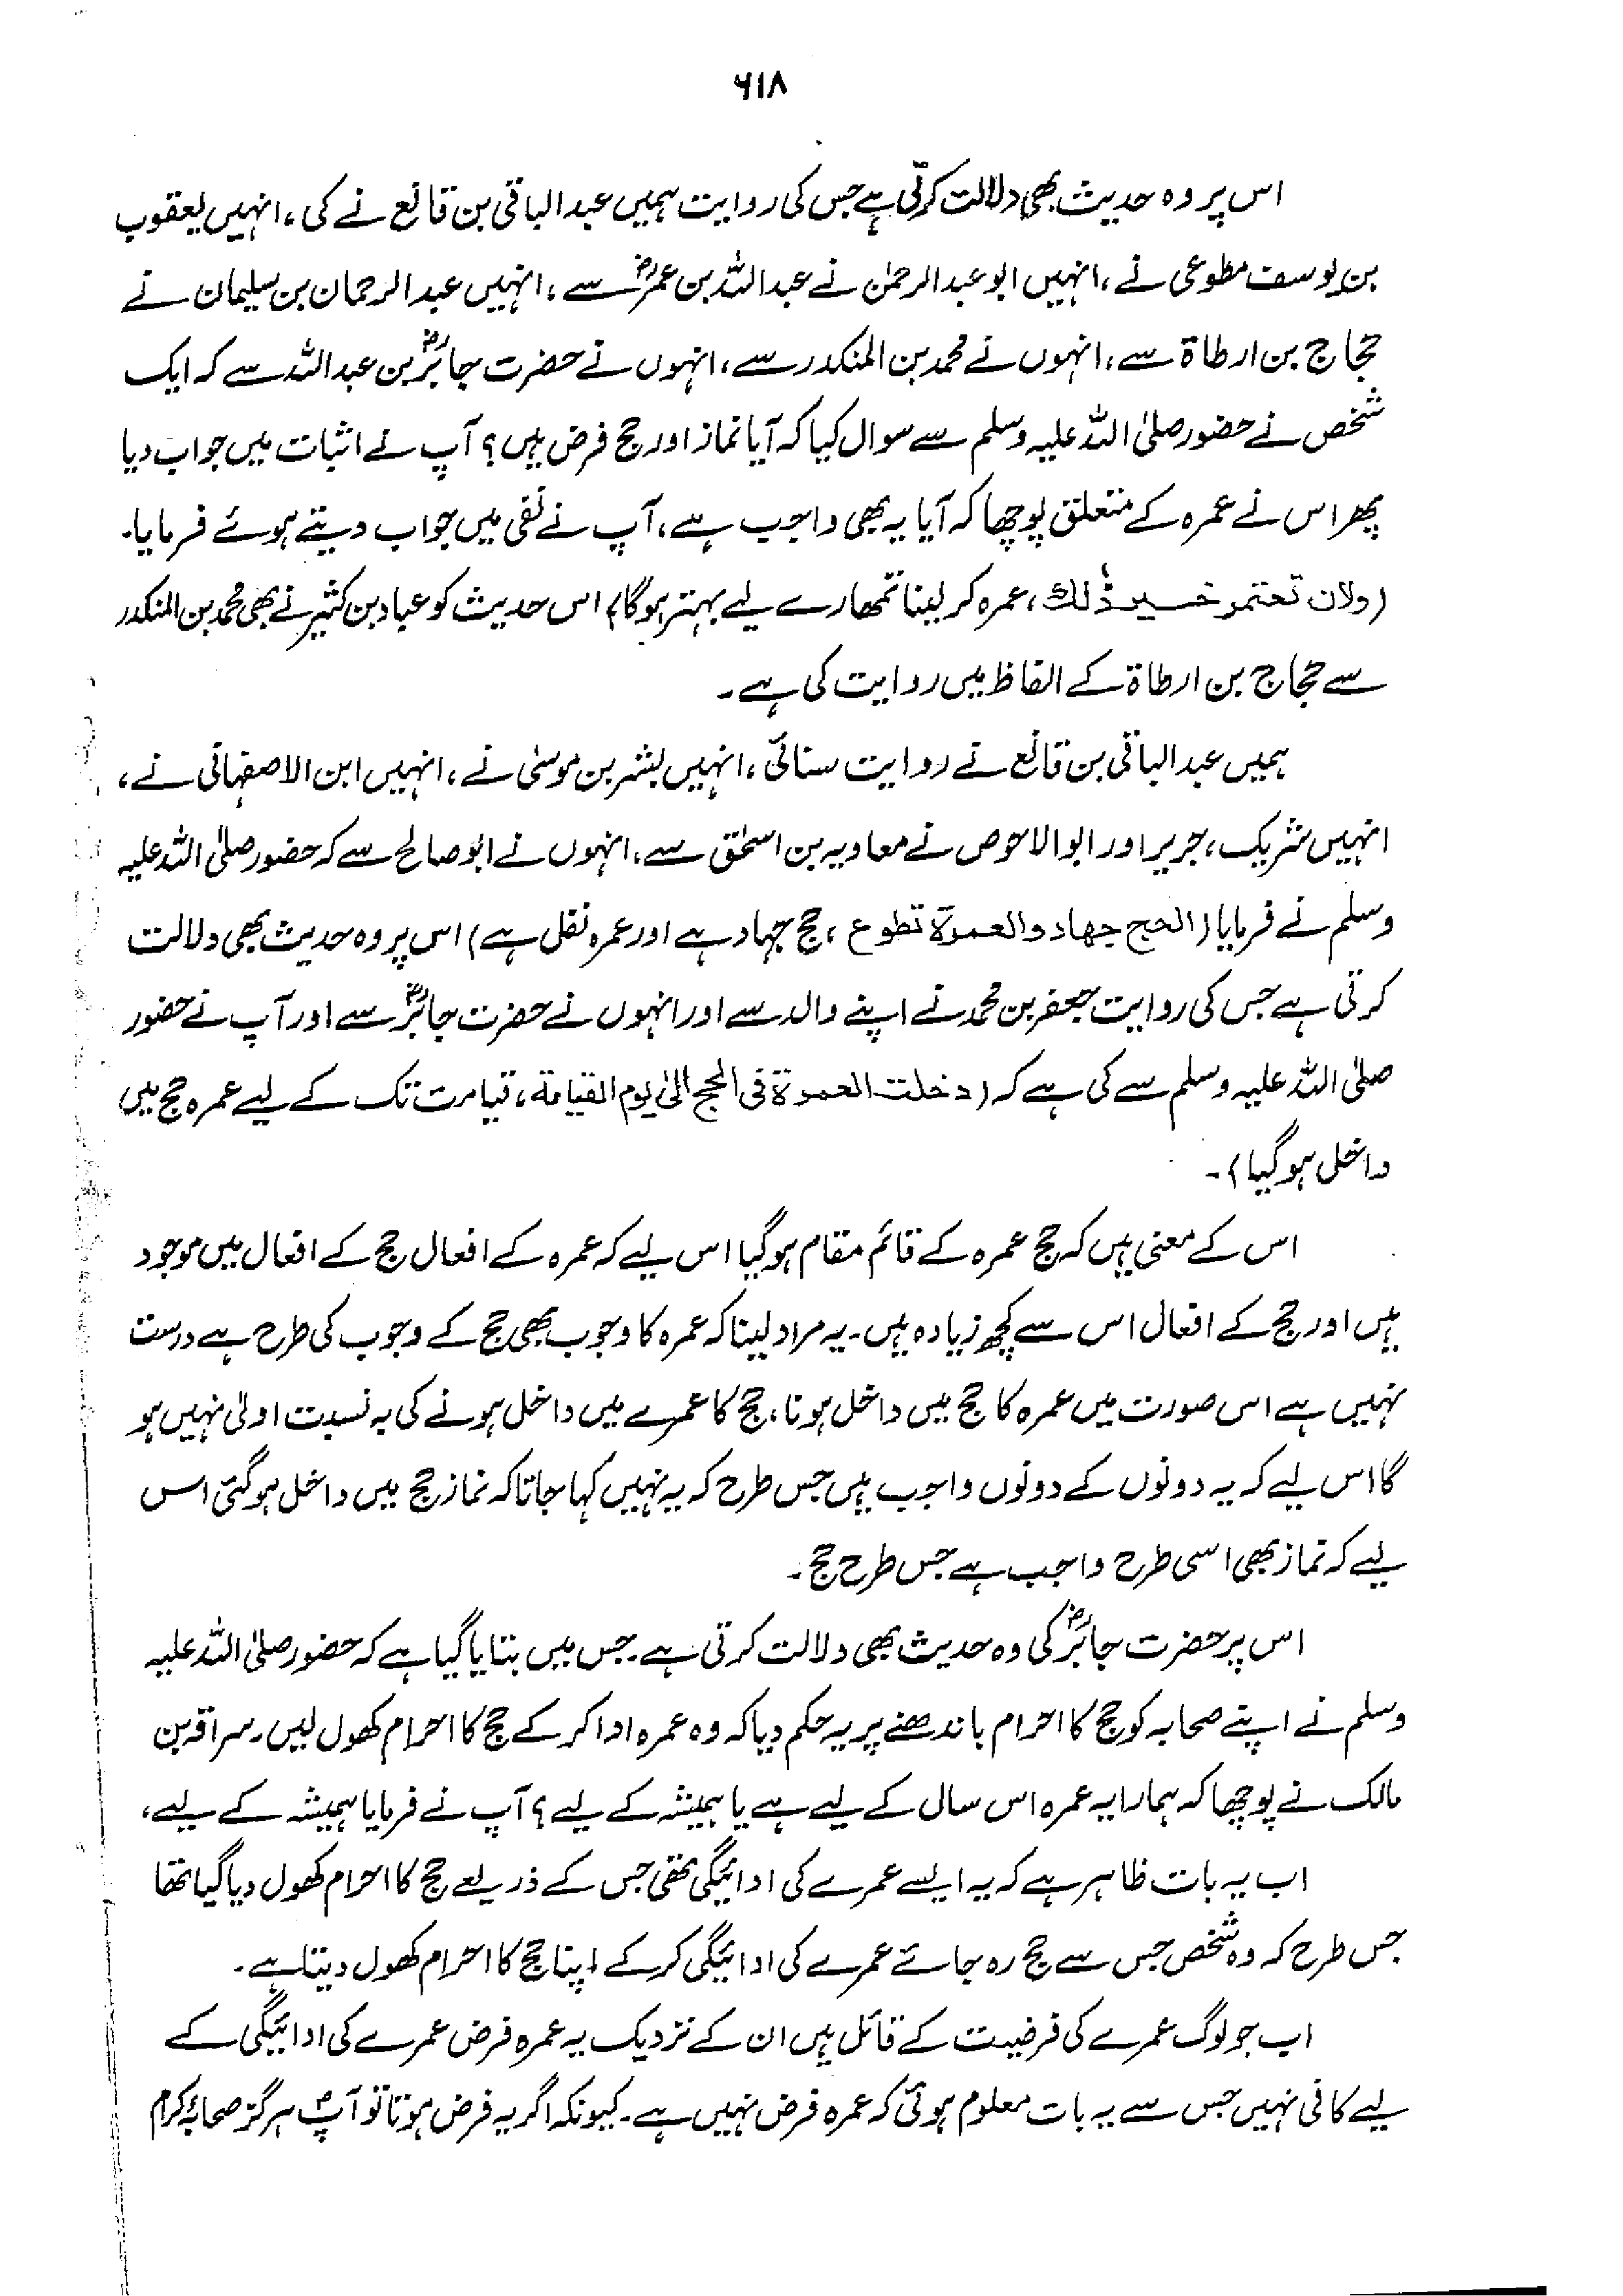 ۶۱۸
اس پر وہ حدیث بھی دلالت کرتی ہے جس کی روایت ہمیں عبدالباقی بن قانع نے کی، انہیں یعقوب
بن یوسف مطوعی نے، انہیں ابو عبدالرحمٰن نے عبداللہ بن عمرؓ سے، انہیں عبدالرحمان بن سلیمان نے
حجاج بن ارطاۃ سے، انہوں نے محمد بن المنکدر سے، انہوں نے حضرت جابرؓ بن عبداللہ سے کہ ایک
شخص نے حضور صلی اللہ علیہ وسلم سے سوال کیا کہ آیا نماز اور حج فرض ہیں؟ آپ نے اثبات میں جواب دیا
پھر اس نے عمرہ کے متعلق پوچھا کہ آیا یہ بھی واجب ہے، آپ نے نفی میں جواب دیتے ہوئے فرمایا۔
(ولان تعتمر خیر ذٰلك، عمرہ کر لینا تمھارے لیے بہتر ہوگا) اس حدیث کو عباد بن کثیر نے بھی محمد بن المنکدر
سے حجاج بن ارطاۃ کے الفاظ میں روایت کی ہے۔
ہمیں عبدالباقی بن قانع نے روایت سنائی، انہیں بشر بن موسیٰ نے، انہیں ابن الاصفہانی نے،
انہیں شریک، جریر اور ابوالاحوص نے معاویہ بن اسحٰق سے، انہوں نے ابوصالح سے کہ حضور صلی اللہ علیہ
وسلم نے فرمایا (الحج جهاد والعمرة تطوع، حج جہاد ہے اور عمرہ نفل ہے) اس پر وہ حدیث بھی دلالت
کرتی ہے جس کی روایت جعفر بن محمد نے اپنے والد سے اور انہوں نے حضرت جابرؓ سے اور آپ نے حضور
صلی اللہ علیہ وسلم سے کی ہے کہ (دخلت العمرة فی الحج الیٰ یوم القیامة، قیامت تک کے لیے عمرہ حج میں
داخل ہوگیا)۔
اس کے معنی ہیں کہ حج عمرہ کے قائم مقام ہوگیا اس لیے کہ عمرہ کے افعال حج کے افعال میں موجود
ہیں اور حج کے افعال اس سے کچھ زیادہ ہیں۔ یہ مراد لینا کہ عمرہ کا وجوب بھی حج کے وجوب کی طرح ہے درست
نہیں ہے اس صورت میں عمرہ کا حج میں داخل ہونا، حج کا عمرے میں داخل ہونے کی بہ نسبت اولیٰ نہیں ہو
گا اس لیے کہ یہ دونوں کے دونوں واجب ہیں جس طرح کہ یہ نہیں کہا جاتا کہ نماز حج میں داخل ہوگئی اس
لیے کہ نماز بھی اسی طرح واجب ہے جس طرح حج۔
اس پر حضرت جابرؓ کی وہ حدیث بھی دلالت کرتی ہے۔ جس میں بتایا گیا ہے کہ حضور صلی اللہ علیہ
وسلم نے اپنے صحابہ کو حج کا احرام باندھنے پر یہ حکم دیا کہ وہ عمرہ ادا کر کے حج کا احرام کھول لیں۔ سراقہ بن
مالک نے پوچھا کہ ہمارا یہ عمرہ اس سال کے لیے ہے یا ہمیشہ کے لیے؟ آپ نے فرمایا ہمیشہ کے لیے،
اب یہ بات ظاہر ہے کہ یہ ایسے عمرے کی ادائیگی تھی جس کے ذریعے حج کا احرام کھول دیا گیا تھا
جس طرح کہ وہ شخص جس سے حج رہ جائے عمرے کی ادائیگی کر کے اپنا حج کا احرام کھول دیتا ہے۔
اب جو لوگ عمرے کی فرضیت کے قائل ہیں ان کے نزدیک یہ عمرہ فرض عمرے کی ادائیگی کے
لیے کافی نہیں جس سے یہ بات معلوم ہوئی کہ عمرہ فرض نہیں ہے۔ کیونکہ اگر یہ فرض ہوتا تو آپؐ ہرگز صحابۂ کرام